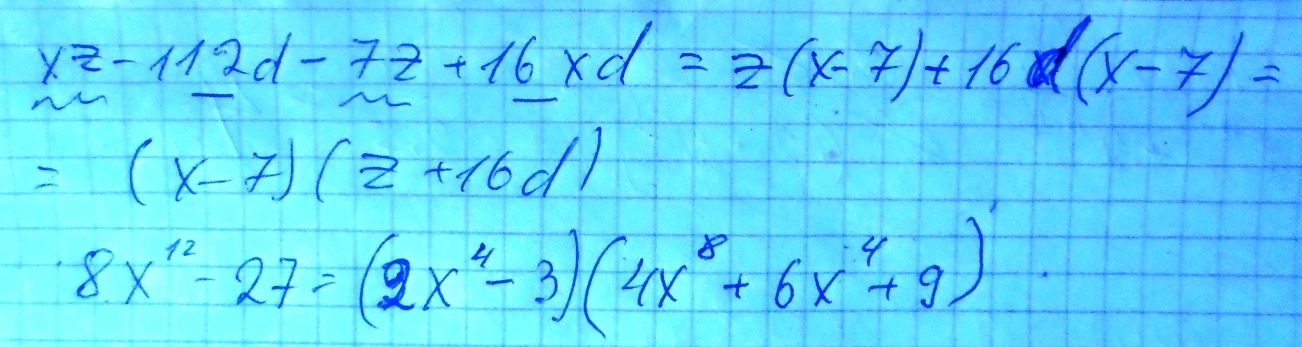 xz - 112d - 7z + 16xd = z(x - 7) + 16d(x - 7) =
= (x - 7)(z + 16d)
8x¹² - 27 = (2x⁴ - 3)(4x⁸ + 6x⁴ + 9)